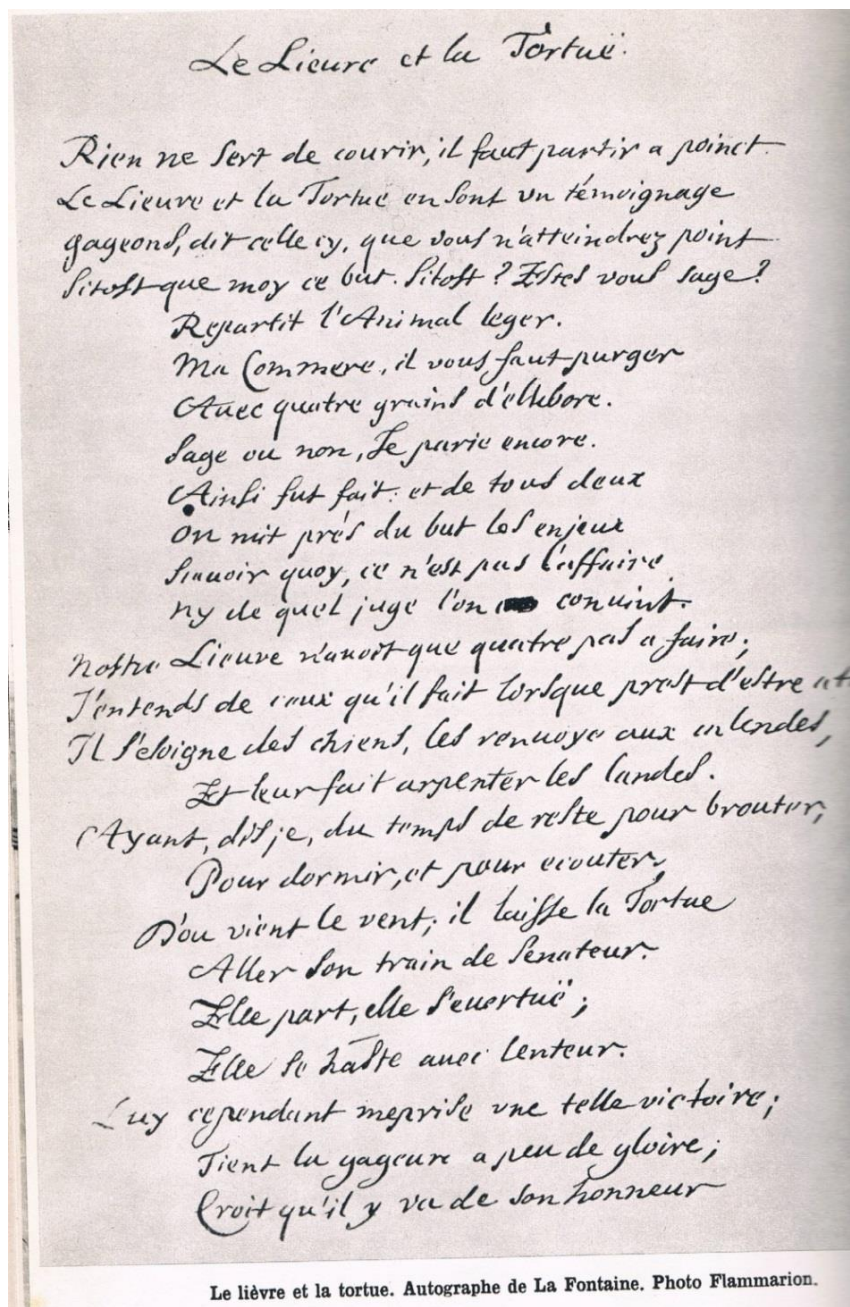 Le Lieure et la Tortuë.
Rien ne sert de courir, il faut partir a poinct.
Le Lieure et la Tortuë en sont vn témoignage
gageons, dit celle cy, que vous n'atteindrez point
Sitost que moy ce but. Sitost ? Estes vous sage ?
Repartit l'Animal leger.
Ma Commere, il vous faut purger
Auec quatre grains d'ellebore.
Sage ou non, Je parie encore.
Ainsi fut fait : et de tous deux
On mit prés du but les enjeux
Sçauoir quoy, ce n'est pas l'affaire
ny de quel juge l'on conuint.
Nostre Lieure n'auoit que quatre pas a faire ;
J'entends de ceux qu'il fait lorsque prest d'estre att
Il s'eloigne des chiens, les renuoye aux calendes,
Et leur fait arpenter les landes.
Ayant, dis je, du temps de reste pour brouter,
Pour dormir, et pour ecouter,
D'ou vient le vent ; il laisse la Tortue
Aller son train de Senateur.
Elle part, elle s'euertuë ;
Elle se haste auec lenteur.
Luy cependant meprise vne telle victoire ;
Tient la gageure a peu de gloire ;
Croit qu'il y va de son honneur
Le lièvre et la tortue. Autographe de La Fontaine. Photo Flammarion.